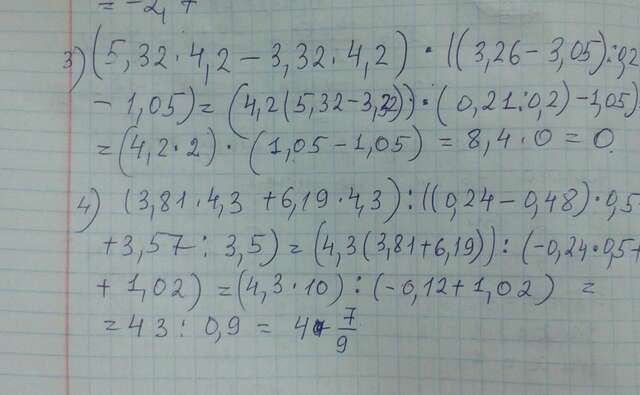 = -2, +
3) (5,32 · 4,2 - 3,32 · 4,2) · ((3,26 - 3,05) : 0,2
- 1,05) = (4,2 (5,32 - 3,32)) · (0,21 : 0,2) - 1,05)
= (4,2 · 2) · (1,05 - 1,05) = 8,4 · 0 = 0
4) (3,81 · 4,3 + 6,19 · 4,3) : ((0,24 - 0,48) · 0,5
+ 3,57 : 3,5) = (4,3 (3,81 + 6,19)) : (-0,24 · 0,5 +
+ 1,02) = (4,3 · 10) : (-0,12 + 1,02) =
= 43 : 0,9 = 4 7/9